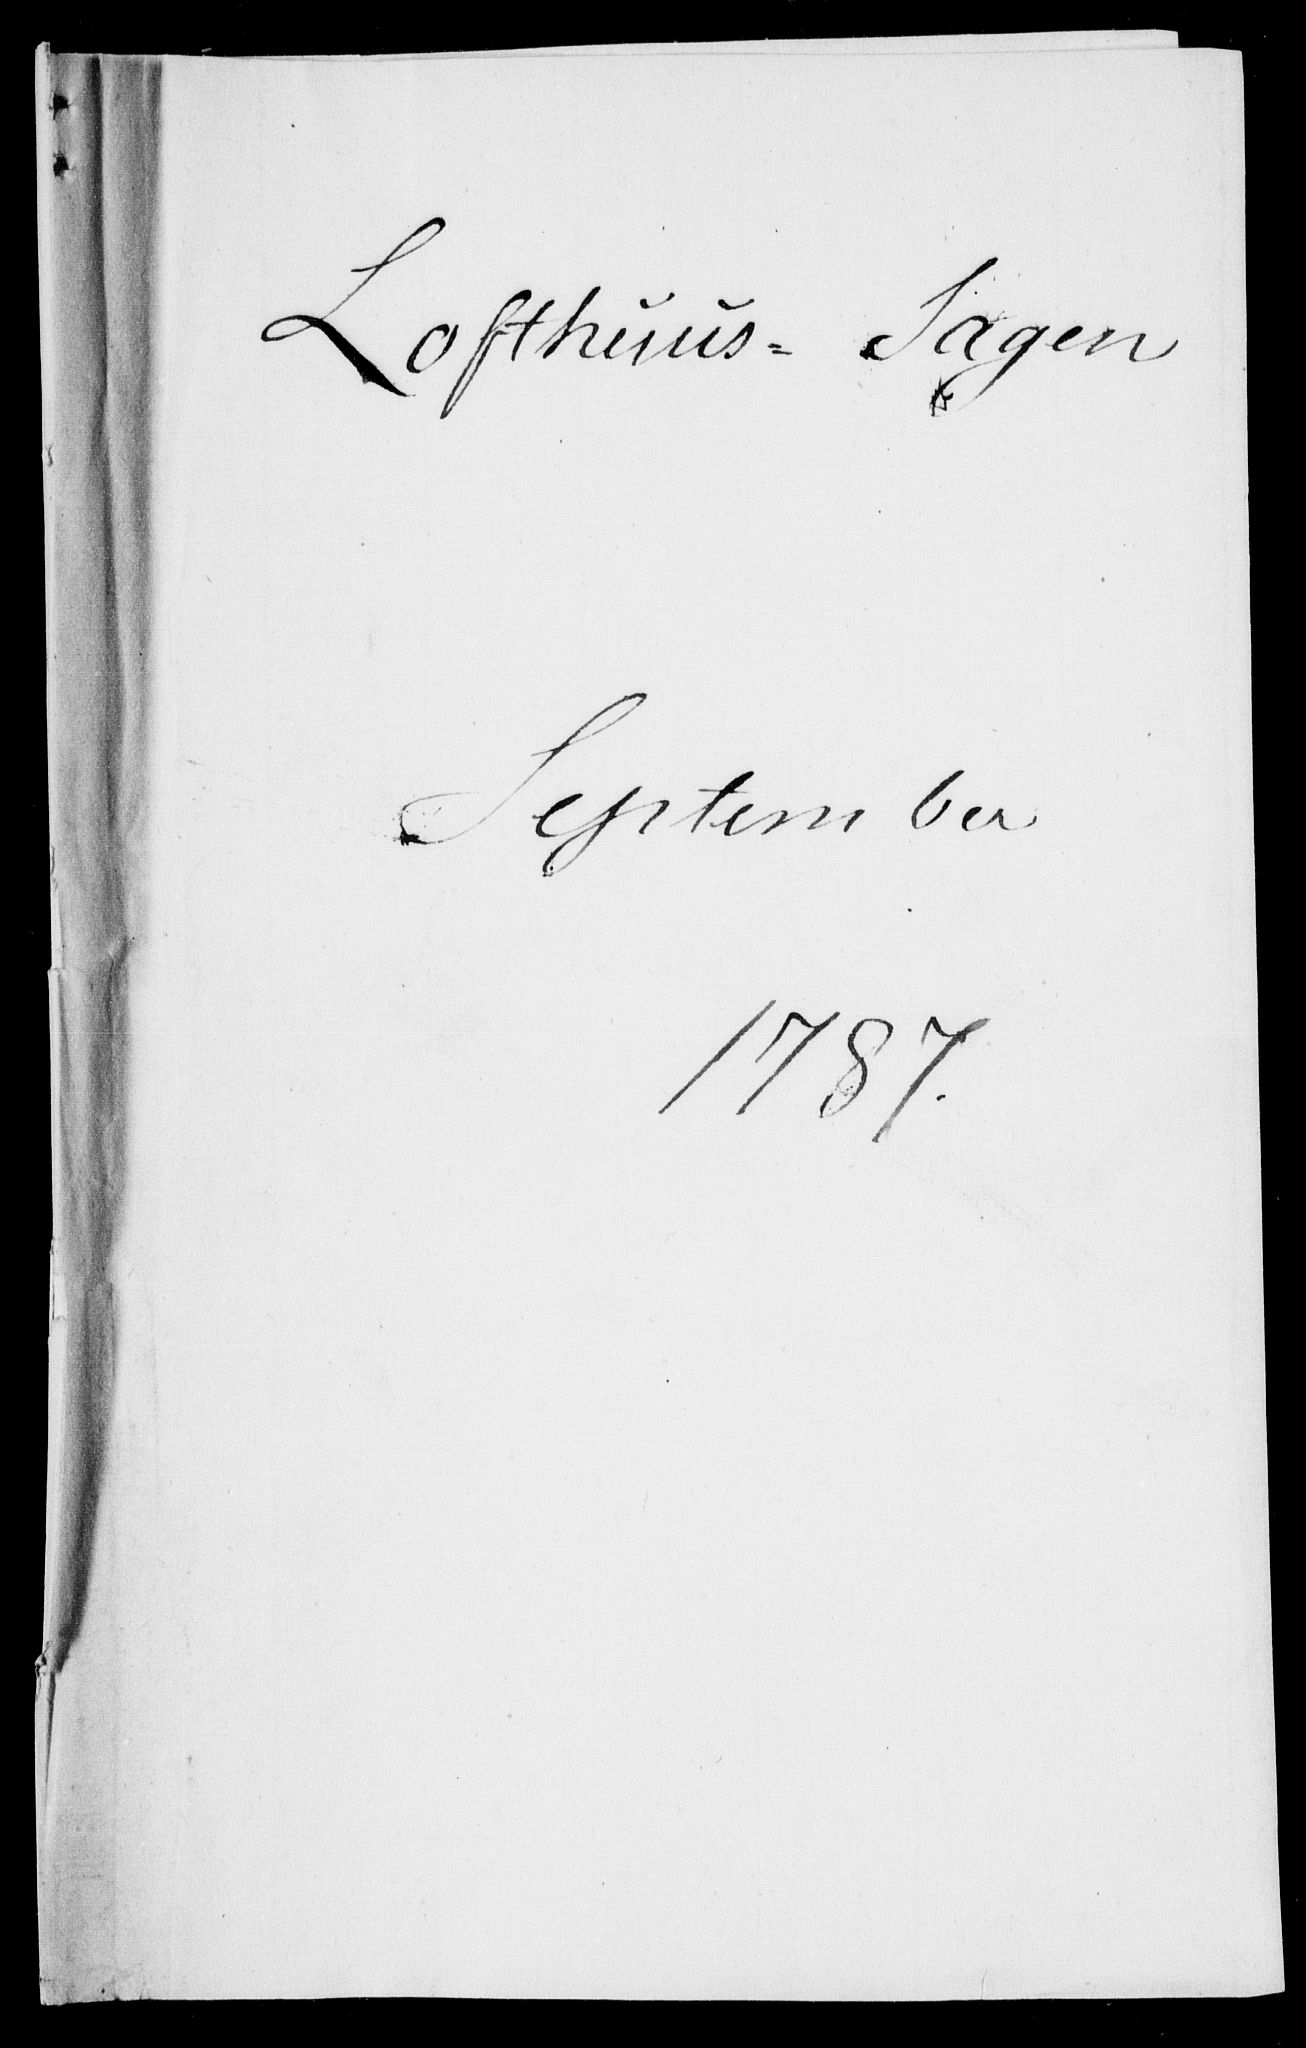 Lofthuus= Sagen
September
1787.